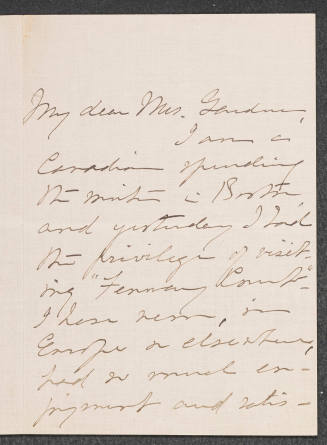 My dear Mrs. Gardner,
I am a
Canadian spending
the winter in Boston,
and yesterday I had
the privilege of visit-
ing "Fenway Court".
I have never, in
Europe or elsewhere,
had so much en-
joyment and satis-